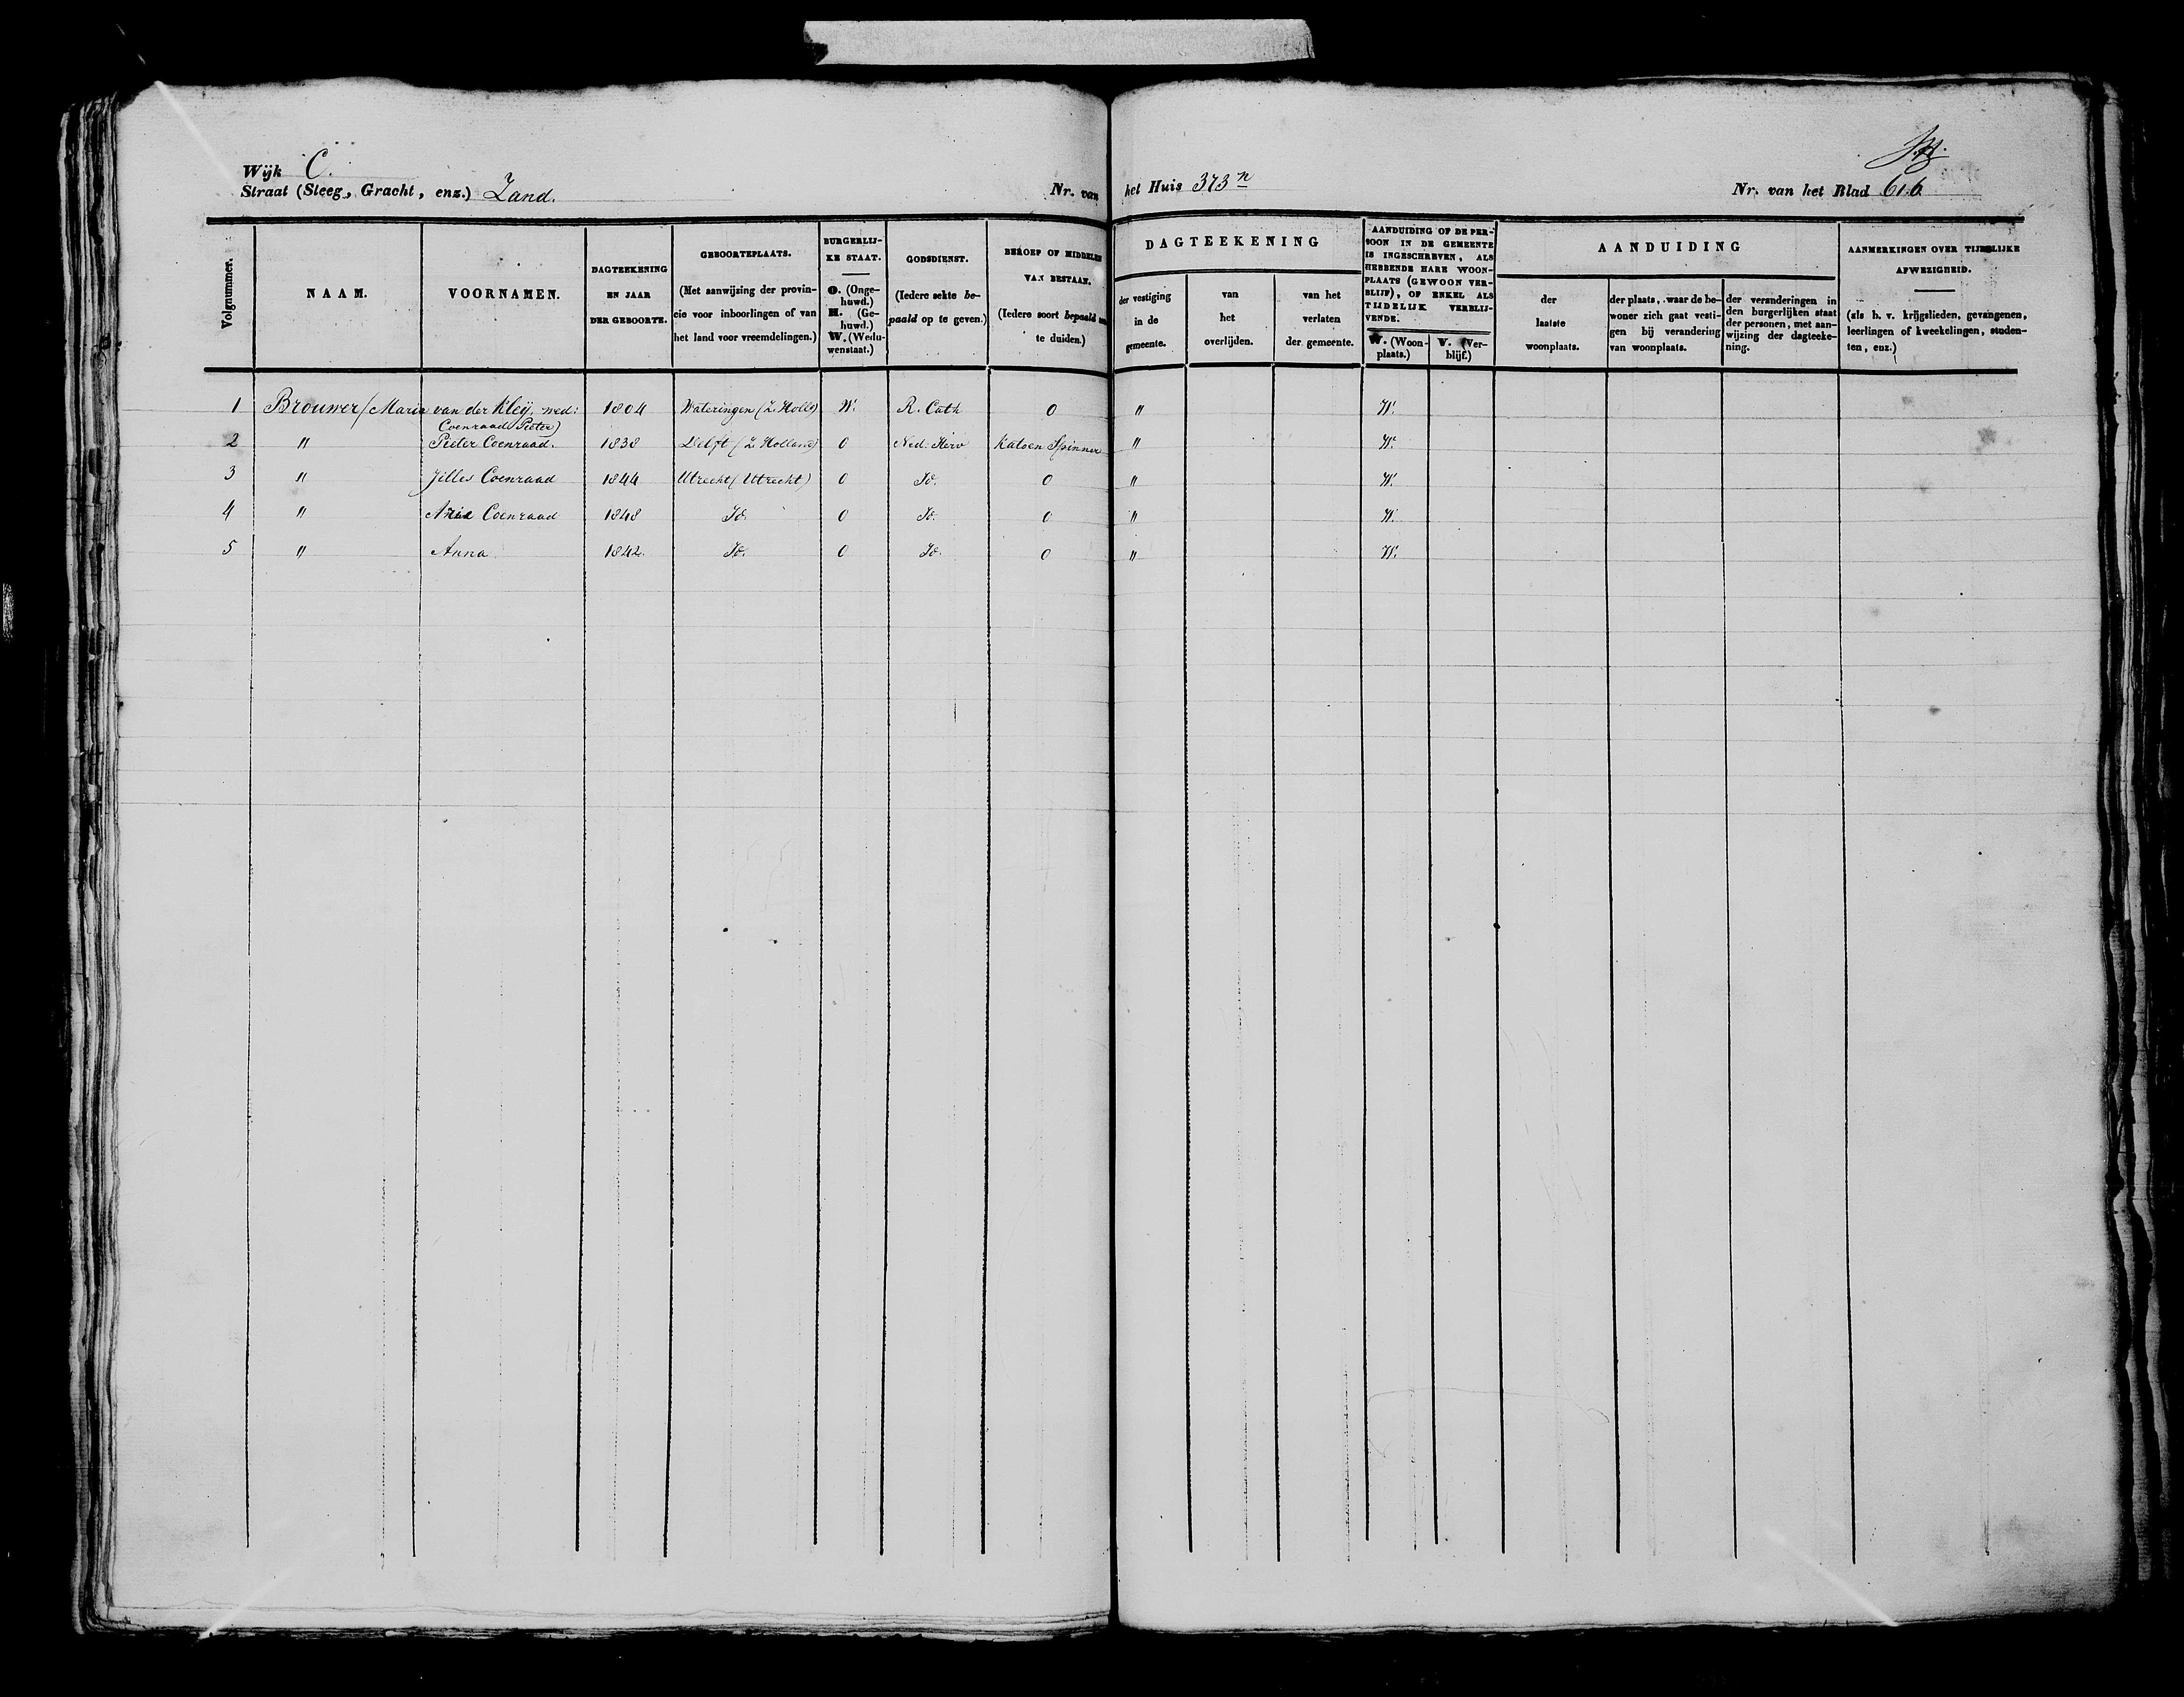 Wijk C.
Straat (Steeg, Gracht, enz.) Zand.
Nr. van het Huis 373 n
Nr. van het Blad 616
Volgnummer.
NAAM.
VOORNAMEN.
DAGTEEKENING
EN JAAR
DER GEBOORTE.
GEBOORTEPLAATS.
(Met aanwijzing der provin-
cie voor inboorlingen of van
het land voor vreemdelingen.)
BURGERLIJ-
KE STAAT.
O. (Onge-
huwd.)
H. (Ge-
huwd.)
W. (Wedu-
wenstaat.)
GODSDIENST.
(Iedere sekte be-
paald op te geven.)
BEROEP OF MIDDELEN
VAN BESTAAN.
(Iedere soort bepaald
te duiden.)
DAGTEEKENING
der vestiging
in de
gemeente.
van
het
overlijden.
van het
verlaten
der gemeente.
AANDUIDING OF DE PER-
SOON IN DE GEMEENTE
IS INGESCHREVEN, ALS
HEBBENDE HARE WOON-
PLAATS (GEWOON VER-
BLIJF), OF ENKEL ALS
TIJDELIJK VERBLIJ-
VENDE.
W. (Woon-
plaats.)
V. (Ver-
blijf.)
AANDUIDING
der
laatste
woonplaats.
der plaats, waar de be-
woner zich gaat vesti-
gen bij verandering
van woonplaats.
der veranderingen in
den burgerlijken staat
der personen, met aan-
wijzing der dagteeke-
ning.
AANMERKINGEN OVER TIJDELIJKE
AFWEZIGHEID.
(als b. v. krijgslieden, gevangenen,
leerlingen of kweekelingen, studen-
ten, enz.)
1 Brouwer (Maria van der Kleij, wed: 1804 Wateringen (Z. Holld) W. R. Cath 0 " W.
Coenraad Pieter)
2 " Pieter Coenraad. 1838 Delft (Z. Holland) 0 Ned: Herv Katoen Spinner " W.
3 " Jilles Coenraad 1844 Utrecht (Utrecht) 0 Id. 0 " W.
4 " Arie Coenraad 1848 Id. 0 Id. 0 " W.
5 " Anna 1842. Id. 0 Id. 0 " W.